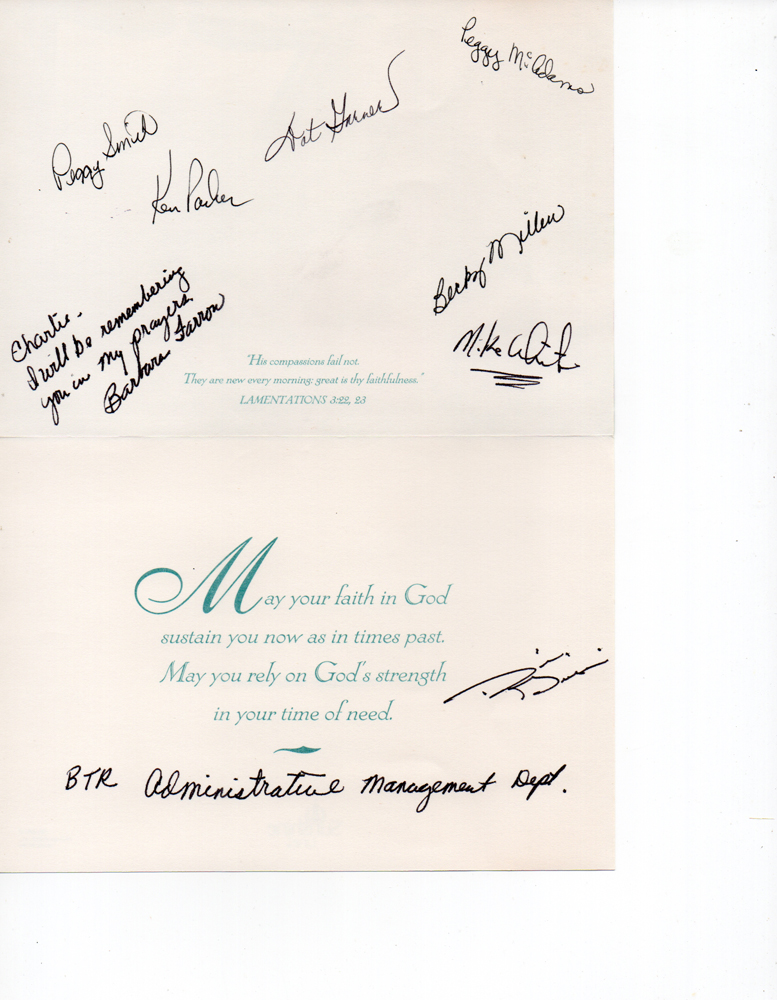 Peggy McAdams
Dot Garner
Peggy Smith
Ken Parker
Becky Miller
Mike White
Charlie -
I will be remembering
you in my prayers.
Barbara Farron
"His compassions fail not.
They are new every morning: great is thy faithfulness."
LAMENTATIONS 3:22, 23
May your faith in God
sustain you now as in times past.
May you rely on God's strength
in your time of need.
BTR Administrative Management Dept.